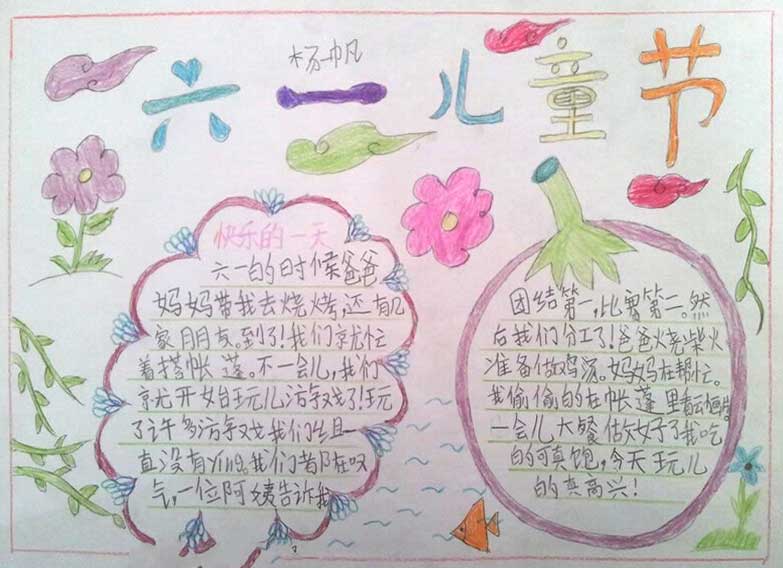 杨帆
六一儿童节
快乐的一天
六一的时候爸爸
妈妈带我去烧烤,还有几
家朋友。到了!我们就忙
着搭帐蓬。不一会儿,我们
就开始玩儿游戏了!玩
了许多游戏我们组一
直没有赢。我们都在叹
气,一位阿姨告诉我
团结第一,比赛第二。然
后我们分工了!爸爸烧柴火
准备做鸡汤。妈妈在帮忙。
我偷偷的在帐蓬里看
一会儿大餐做好了我吃
的可真饱,今天玩儿
的真高兴!